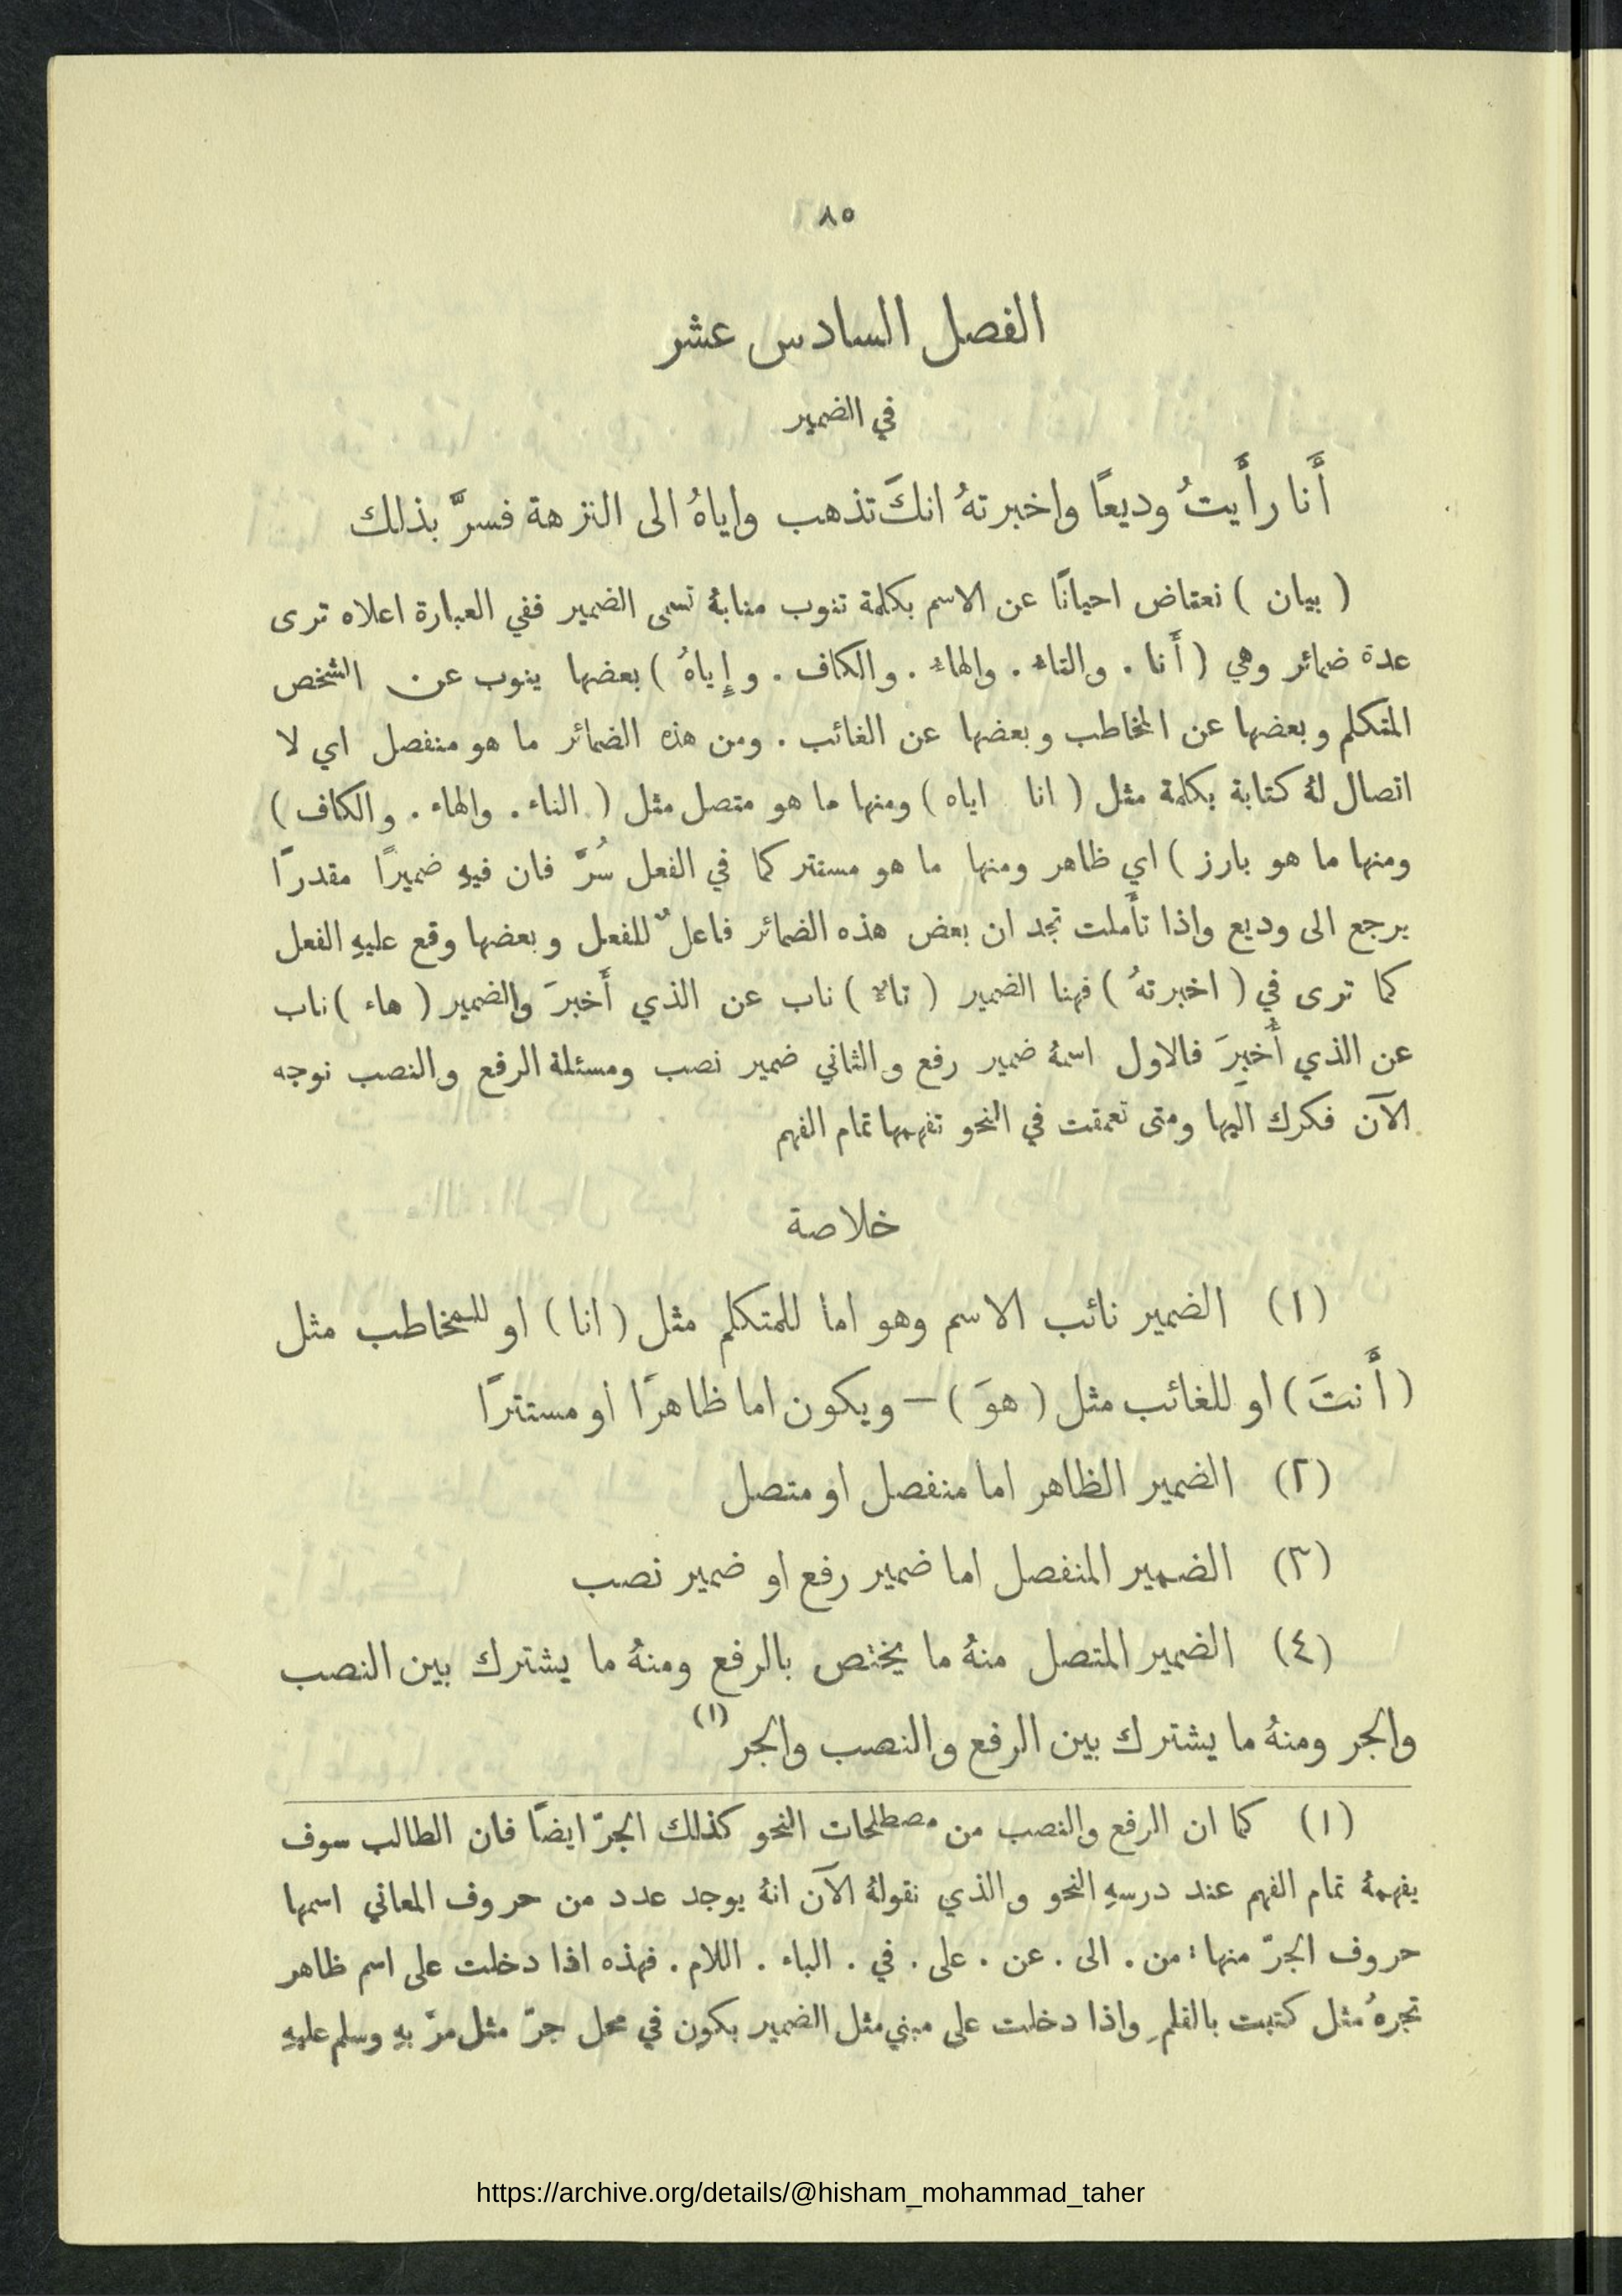 ٨٥
الفصل السادس عشر
في الضمير
أَنا رأَيتُ وديعًا واخبرتهُ انكَ تذهب واياهُ الى النزهة فسرَّ بذلك
( بيان ) نعتاض احيانًا عن الاسم بكلمة تنوب منابهُ تسمى الضمير ففي العبارة اعلاه ترى
عدة ضمائر وهي ( أَنا . والتاء . والهاء . والكاف . وإِياهُ ) بعضها ينوب عن الشخص
المتكلم وبعضها عن المخاطب وبعضها عن الغائب . ومن هذه الضمائر ما هو منفصل اي لا
اتصال لهُ كتابة بكلمة مثل ( انا اياه ) ومنها ما هو متصل مثل ( التاء . والهاء . والكاف )
ومنها ما هو بارز ) اي ظاهر ومنها ما هو مستتر كما في الفعل سُرَّ فان فيهِ ضميرًا مقدرًا
يرجع الى وديع واذا تأَملت تجد ان بعض هذه الضمائر فاعلٌ للفعل وبعضها وقع عليهِ الفعل
كما ترى في ( اخبرتهُ ) فهنا الضمير ( تاء ) ناب عن الذي أَخبرَ والضمير ( هاء ) ناب
عن الذي أُخبِرَ فالاول اسمهُ ضمير رفع والثاني ضمير نصب ومسئلة الرفع والنصب نوجه
الآن فكرك اليها ومتى تعمقت في النحو تفهمها تمام الفهم
خلاصة
(١) الضمير نائب الاسم وهو اما للمتكلم مثل ( انا ) او للمخاطب مثل
( أَنتَ ) او للغائب مثل ( هوَ ) – ويكون اما ظاهرًا او مستترًا
(٢) الضمير الظاهر اما منفصل او متصل
(٣) الضمير المنفصل اما ضمير رفع او ضمير نصب
(٤) الضمير المتصل منهُ ما يختص بالرفع ومنهُ ما يشترك بين النصب
والجر ومنهُ ما يشترك بين الرفع والنصب والجر (١)
(١) كما ان الرفع والنصب من مصطلحات النحو كذلك الجرّ ايضًا فان الطالب سوف
يفهمهُ تمام الفهم عند درسهِ النحو والذي نقولهُ الآن انهُ يوجد عدد من حروف المعاني اسمها
حروف الجرّ منها : من . الى . عن . على . في . الباء . اللام . فهذه اذا دخلت على اسم ظاهر
تجرهُ مثل كتبت بالقلمِ واذا دخلت على مبني مثل الضمير يكون في محل جرّ مثل مرّ بهِ وسلم عليهِ
https://archive.org/details/@hisham_mohammad_taher